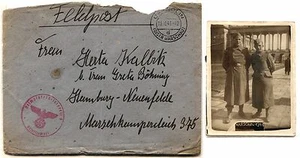 Feldpost
Frau
Herta Kalbitz
b. Frau Greta Böhning
Hamburg-Neuenfelde
Marschkamperdeich 375